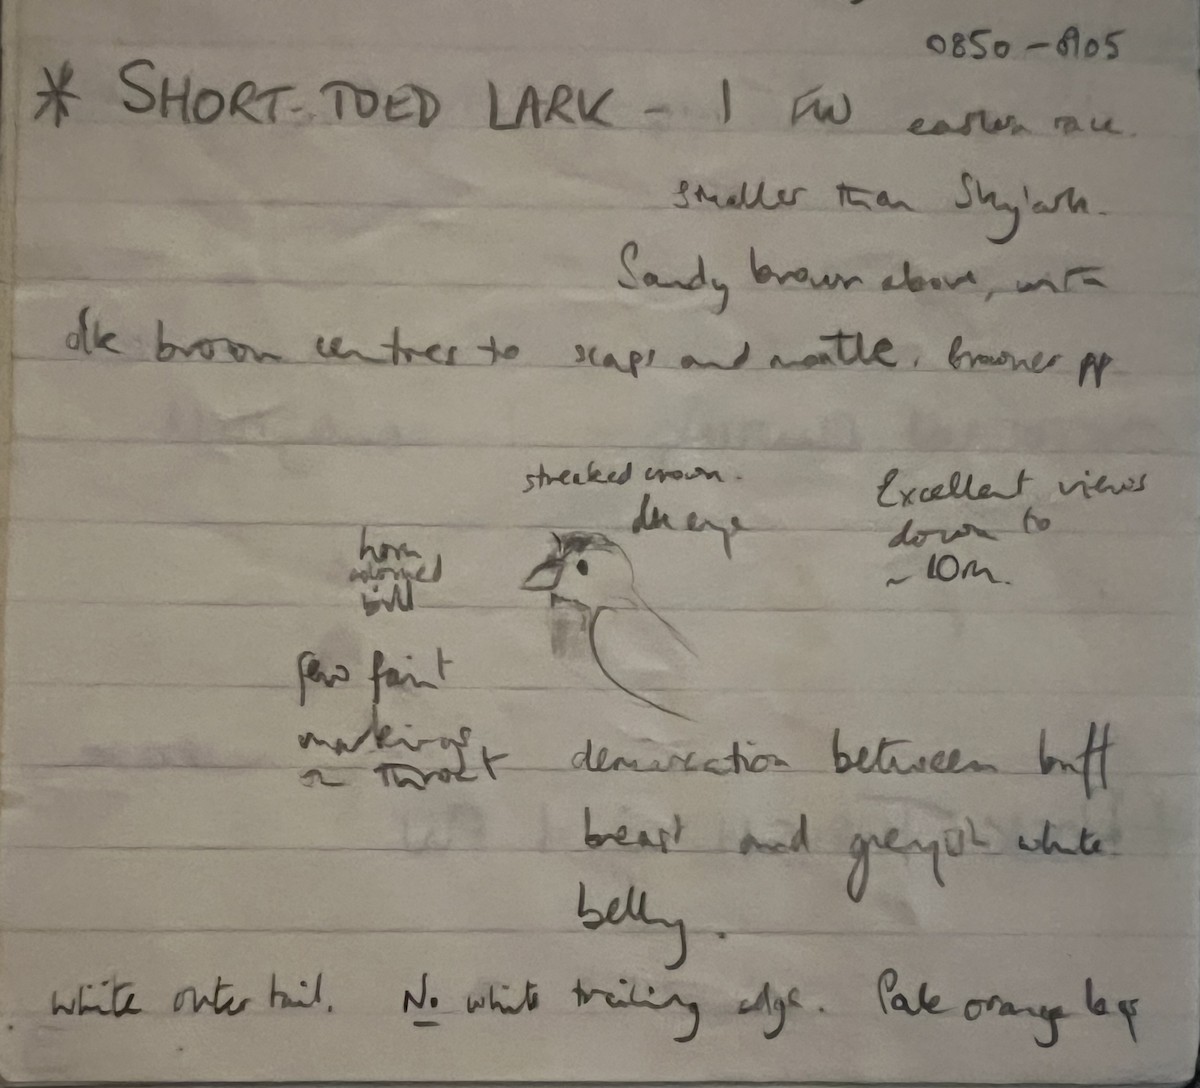 0850-0905
* SHORT-TOED LARK - 1 FW eastern race.
smaller than Skylark.
Sandy brown above, with
dk brown centres to scaps and mantle. browner pp
streaked crown.
dk eye
Excellent views
down to
~ 10m.
horn
coloured
bill
few faint
markings
on throat
demarcation between buff
breast and greyish white
belly.
white outer tail. No white trailing edge. Pale orange legs